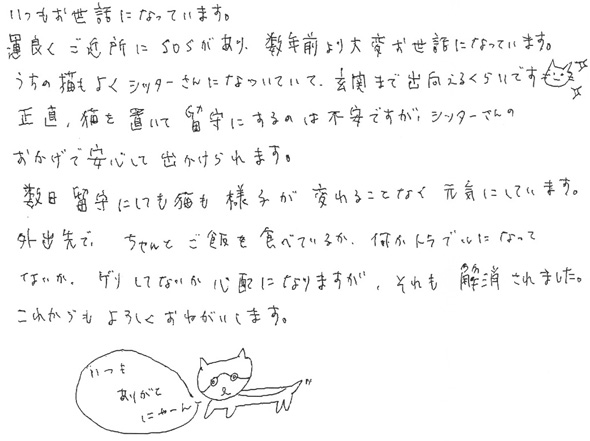 いつもお世話になっています。
運良くご近所にSOSがあり、数年前より大変お世話になっています。
うちの猫もよくシッターさんになついていて、玄関まで出向えるくらいです
正直、猫を置いて留守にするのは不安ですが、シッターさんの
おかげで安心して出かけられます。
数日留守にしても猫も様子が変わることなく元気にしています。
外出先で、ちゃんとご飯を食べているか、何かトラブルになって
ないか、ゲリしてないか心配になりますが、それも解消されました。
これからもよろしくおねがいします。
いつも
ありがと
にゃーん